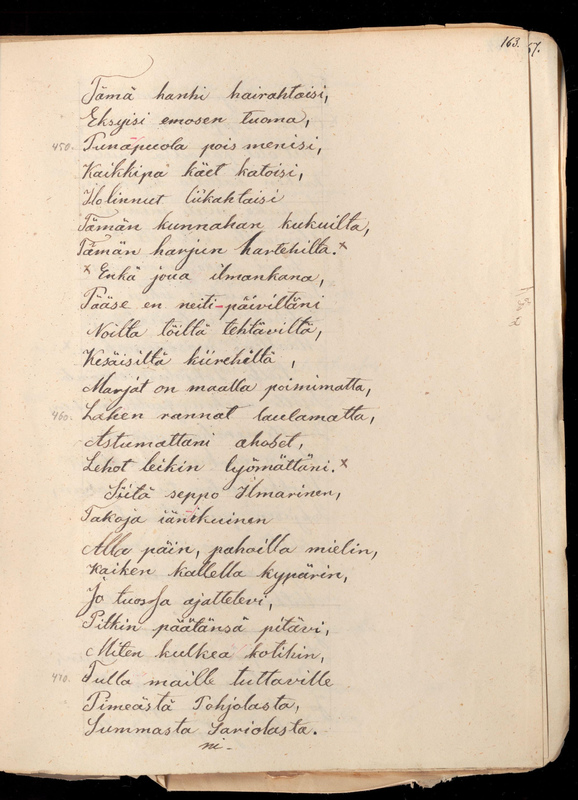 163.
67.
Tämä hanhi hairahtaisi,
Eksyisi emosen tuoma,
450. Punapuola pois menisi,
Kaikkipa käet katoisi,
Ilolinnut liikahtaisi
Tämän kunnahan kukuilta,
Tämän harjun hartehilta.×
× Enkä joua ilmankana,
Pääse en neiti-päiviltäni
Noilta töiltä tehtäviltä,
Kesäisiltä kiirehiltä,
Marjat on maalla poimimatta,
460. Lahen rannat laulamatta,
Astumattani ahoset,
Lehot leikin lyömättäni.×
Siitä seppo Ilmarinen,
Takoja iänikuinen
Alla päin, pahoilla mielin,
Kaiken kallella kypärin,
Jo tuossa ajattelevi,
Pitkin päätänsä pitävi,
Miten kulkea kotihin,
470. Tulla maille tuttaville
Pimeästä Pohjolasta,
Summasta Sariolasta.
ni-